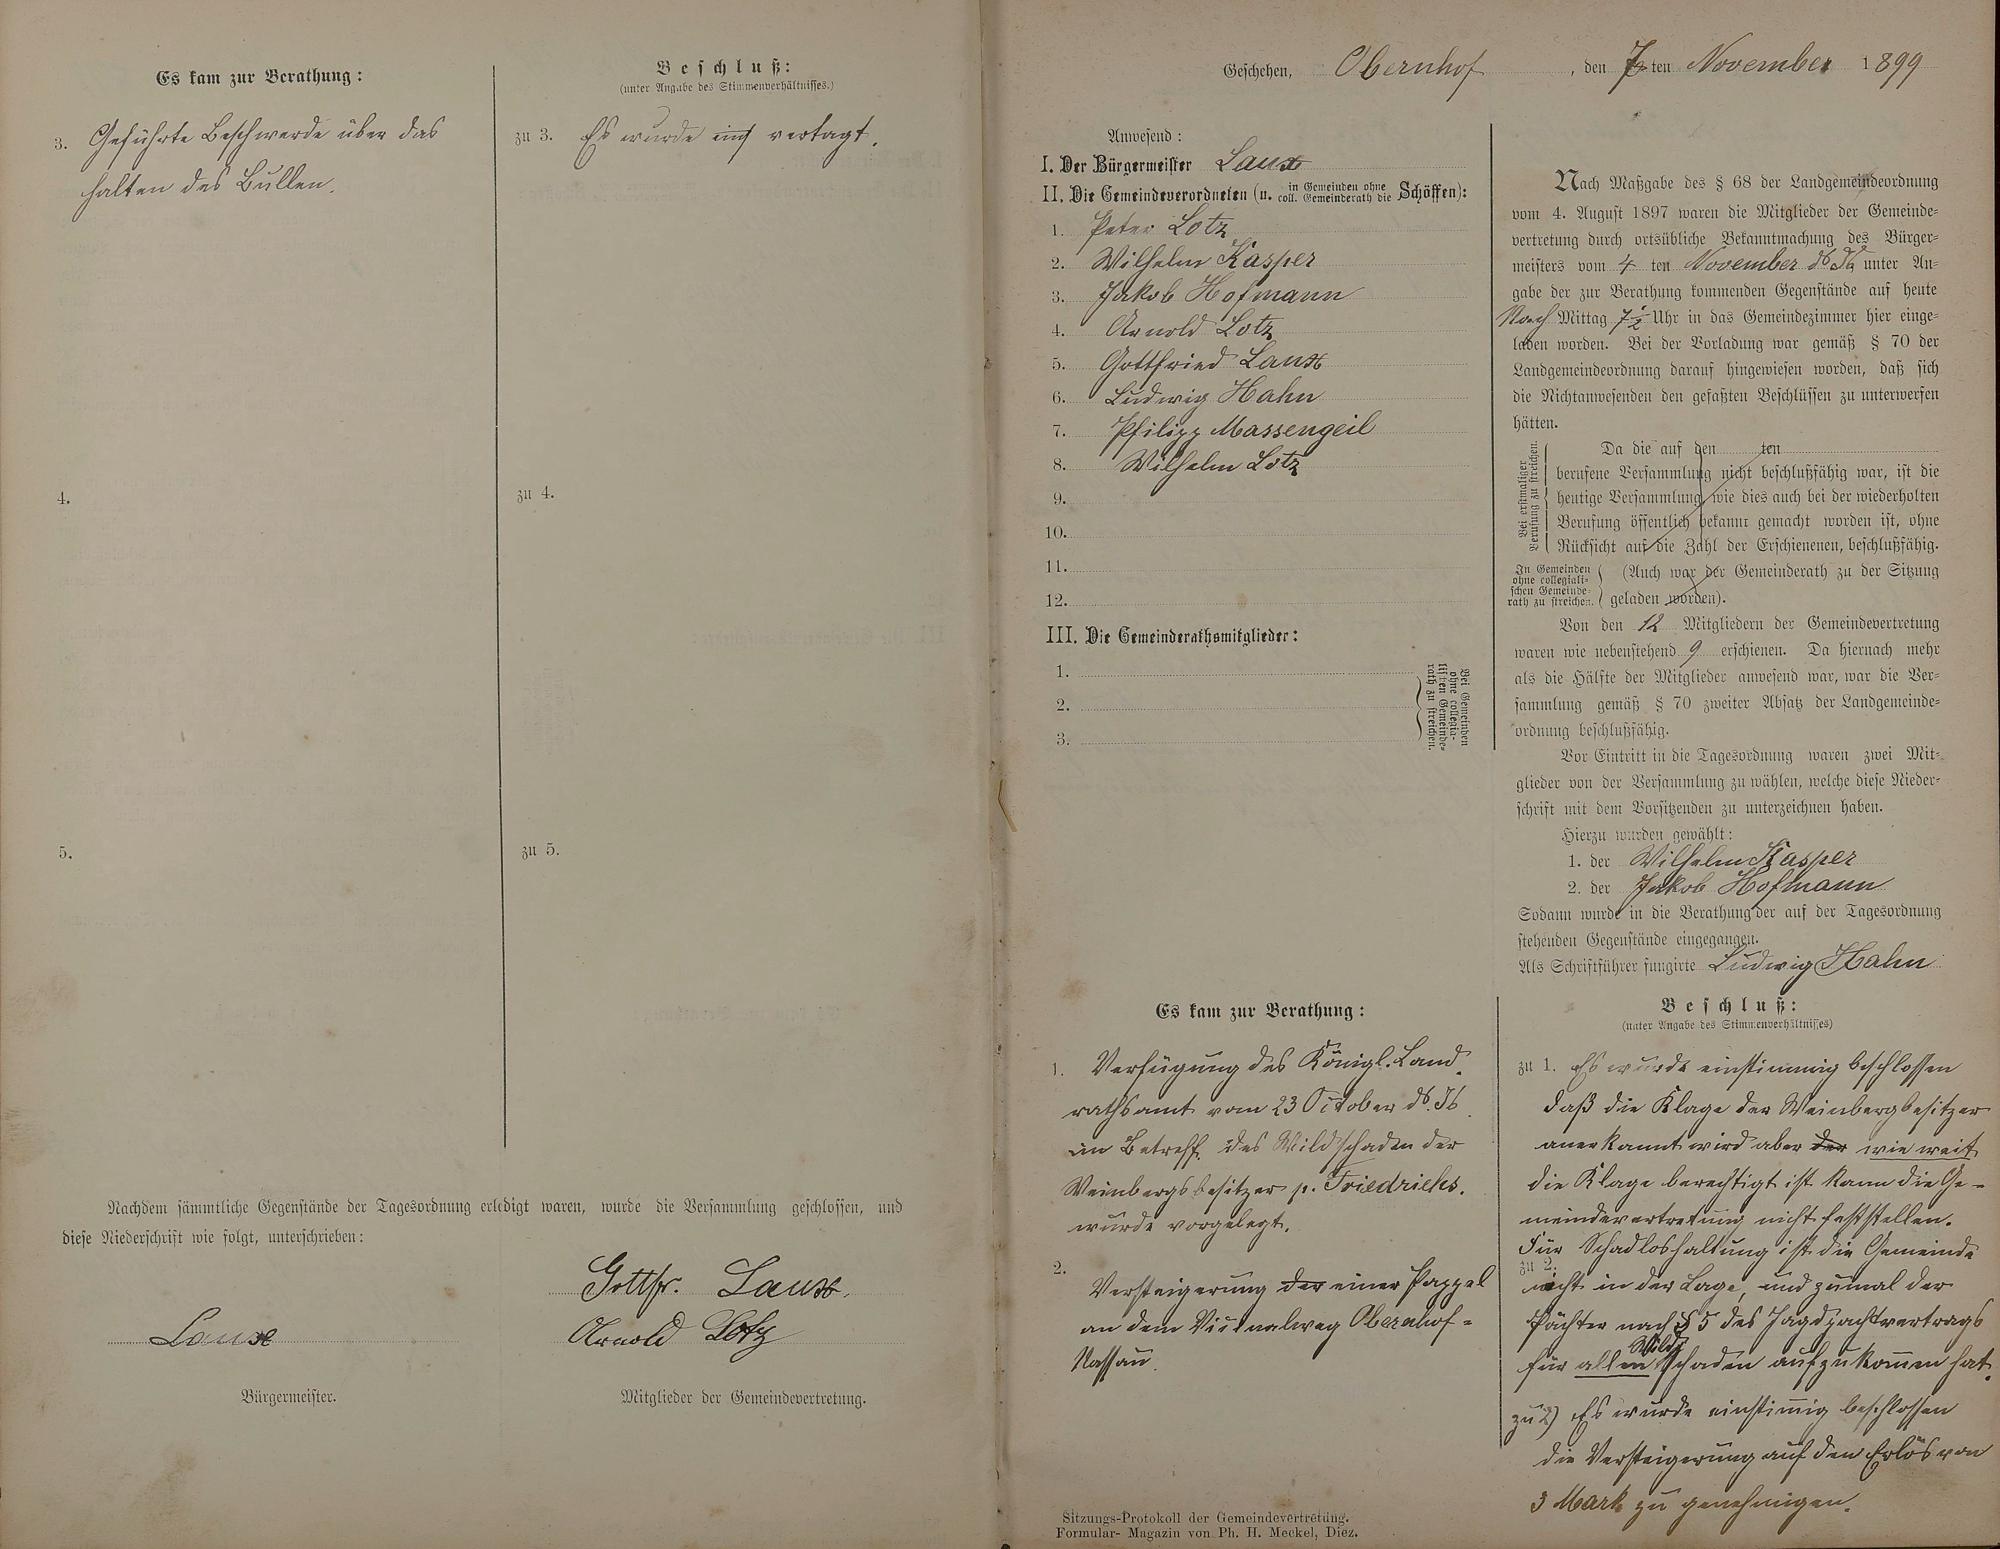 Es kam zur Berathung:
3. Geführte Beschwerde über das
halten des Bullen.
4.
5.
Beschluß:
(unter Angabe des Stimmenverhältnisses.)
zu 3. Es wurde vertagt.
zu 4.
zu 5.
Nachdem sämmtliche Gegenstände der Tagesordnung erledigt waren, wurde die Versammlung geschlossen, und
diese Niederschrift wie folgt, unterschrieben:
Gottfr. Laux.
Laux
Arnold Lotz
Bürgermeister.
Mitglieder der Gemeindevertretung.
Geschehen, Obernhof, den 7ten November 1899
Anwesend:
I. Der Bürgermeister Laux
II. Die Gemeindeverordneten (u. in Gemeinden ohne coll. Gemeinderath die Schöffen):
1. Peter Lotz
2. Wilhelm Kasper
3. Jakob Hofmann
4. Arnold Lotz
5. Gottfried Laux
6. Ludwig Hahn
7. Philipp Massengeil
8. Wilhelm Lotz
9.
10.
11.
12.
III. Die Gemeinderathsmitglieder:
1.
2.
3.
Bei Gemeinden
ohne collegia-
lischen Gemeinde-
rath zu streichen.
Nach Maßgabe des § 68 der Landgemeindeordnung
vom 4. August 1897 waren die Mitglieder der Gemeinde-
vertretung durch ortsübliche Bekanntmachung des Bürger-
meisters vom 4 ten November ds Js unter An-
gabe der zur Berathung kommenden Gegenstände auf heute
Nach Mittag 7½ Uhr in das Gemeindezimmer hier einge-
laden worden. Bei der Vorladung war gemäß § 70 der
Landgemeindeordnung darauf hingewiesen worden, daß sich
die Nichtanwesenden den gefaßten Beschlüssen zu unterwerfen
hätten.
Bei erstmaliger
Berufung zu streichen.
Da die auf den ten
berufene Versammlung nicht beschlußfähig war, ist die
heutige Versammlung, wie dies auch bei der wiederholten
Berufung öffentlich bekannt gemacht worden ist, ohne
Rücksicht auf die Zahl der Erschienenen, beschlußfähig.
In Gemeinden
ohne collegiali-
schen Gemeinde-
rath zu streichen.
(Auch war der Gemeinderath zu der Sitzung
geladen worden).
Von den 12 Mitgliedern der Gemeindevertretung
waren wie nebenstehend 9 erschienen. Da hiernach mehr
als die Hälfte der Mitglieder anwesend war, war die Ver-
sammlung gemäß § 70 zweiter Absatz der Landgemeinde-
ordnung beschlußfähig.
Vor Eintritt in die Tagesordnung waren zwei Mit-
glieder von der Versammlung zu wählen, welche diese Nieder-
schrift mit dem Vorsitzenden zu unterzeichnen haben.
Hierzu wurden gewählt:
1. der Wilhelm Kasper
2. der Jakob Hofmann
Sodann wurde in die Berathung der auf der Tagesordnung
stehenden Gegenstände eingegangen.
Als Schriftführer fungirte Ludwig Hahn
Es kam zur Berathung:
1. Verfügung des Königl. Land.
rathsamt vom 23 October ds. Js.
im Betreff. des Wildschaden der
Weinbergsbesitzer p. Friedrichs.
wurde vorgelegt.
2. Versteigerung der einer Pappel
an dem Vicinalweg Obernhof-
Nassau.
Beschluß:
(unter Angabe des Stimmenverhältnisses)
zu 1. Es wurde einstimmig beschlossen
daß die Klage der Weinbergbesitzer
anerkannt wird aber der wie weit
die Klage berechtigt ist kann die Ge-
meindevertretung nicht feststellen.
Für Schadloshaltung ist die Gemeinde
zu 2.
nicht in der Lage, und zumal der
Pächter nach § 5 des Jagdpachtvertrags
für allen Wildschaden aufzukommen hat.
zu 2) Es wurde einstimmig beschlossen
die Versteigerung auf den Erlös von
3 Mark zu genehmigen.
Sitzungs-Protokoll der Gemeindevertretung.
Formular-Magazin von Ph. H. Meckel, Diez.